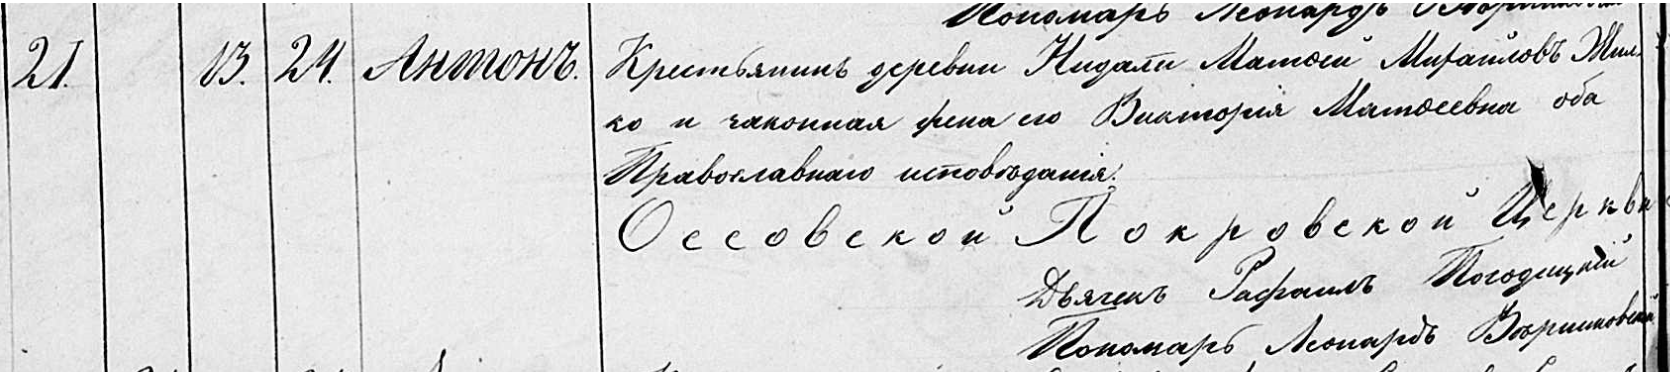 Пономарь Леонардъ
21. 13. 24. Антонъ. Крестьянинъ деревни Нидали Матѳей Михайловъ Жил-
ко и законная жена его Викторія Матѳеевна оба
Православнаго исповѣданія.
Оссовской Покровской Церкви
Дьячекъ Рафаилъ Погодицкій
Пономарь Леонардъ